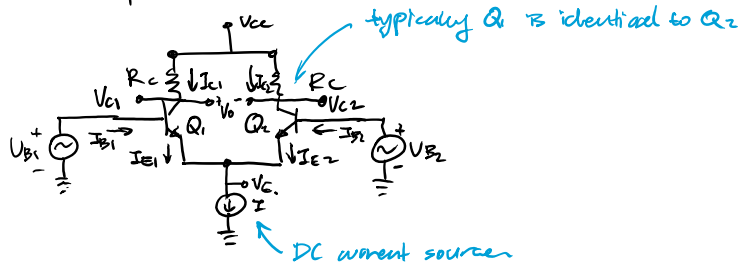 typically Q1 is identical to Q2
VCC
RC
IC1
IC2
RC
VC1
+ Vo -
VC2
IB1
Q1
Q2
IB2
+
UB1
-
IE1
IE2
+
UB2
-
VE.
I
DC current source